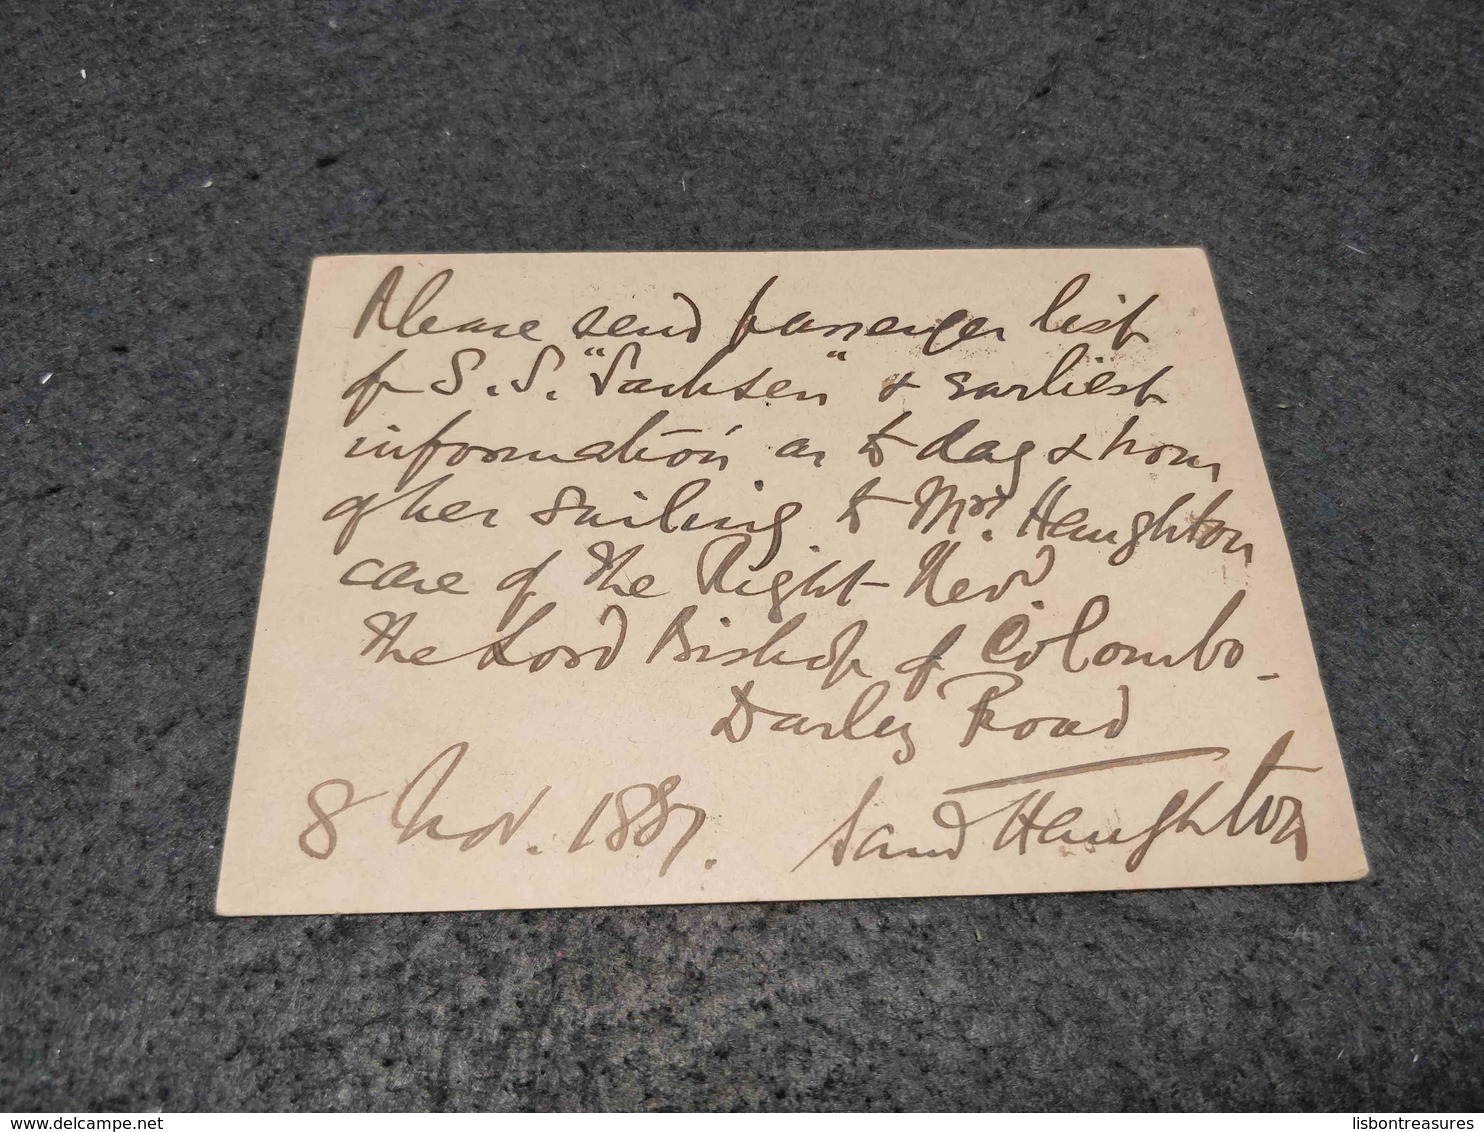 Please send passenger list
for S.S. "Sachsen" & earliest
information as to day & hour
of her sailing to Mrs. Haughton
care of the Right Revd.
the Lord Bishop of Colombo.
Darley Road
8 Nov. 1887. Saml Haughton
www.delcampe.net
lisbontreasures